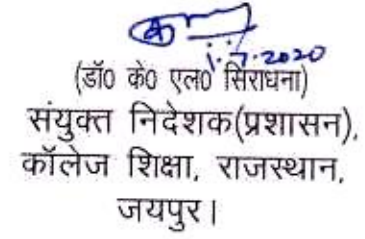 1.7.2020
(डॉ0 के0 एल0 सिराधना)
संयुक्त निदेशक(प्रशासन),
कॉलेज शिक्षा, राजस्थान,
जयपुर।